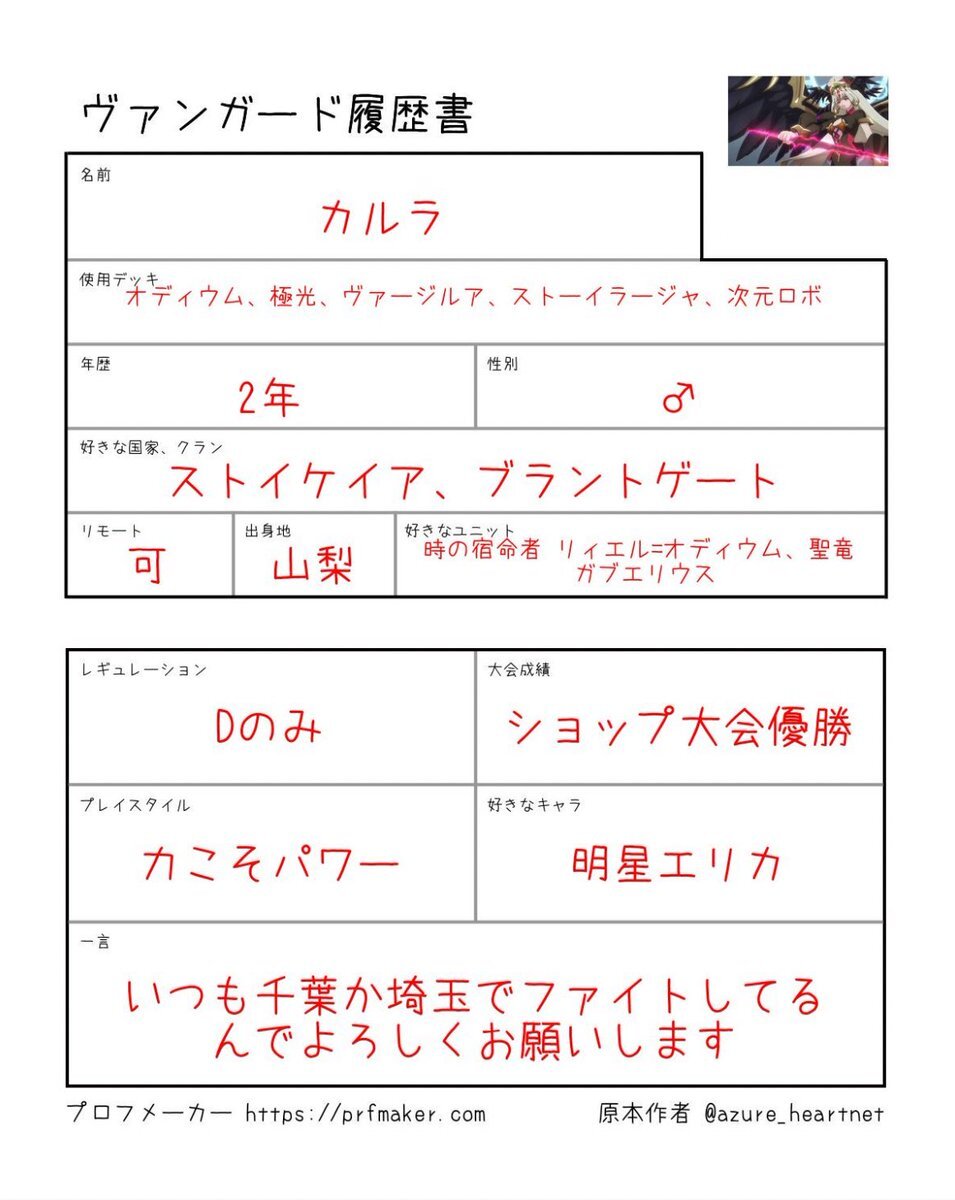 ヴァンガード履歴書
名前
カルラ
使用デッキ
オディウム、極光、ヴァージルア、ストーイラージャ、次元ロボ
年歴
2年
性別
♂
好きな国家、クラン
ストイケイア、ブラントゲート
リモート
可
出身地
山梨
好きなユニット
時の宿命者 リィエル=オディウム、聖竜
ガブエリウス
レギュレーション
Dのみ
大会成績
ショップ大会優勝
プレイスタイル
力こそパワー
好きなキャラ
明星エリカ
一言
いつも千葉か埼玉でファイトしてる
んでよろしくお願いします
プロフメーカー https://prfmaker.com
原本作者 @azure_heartnet